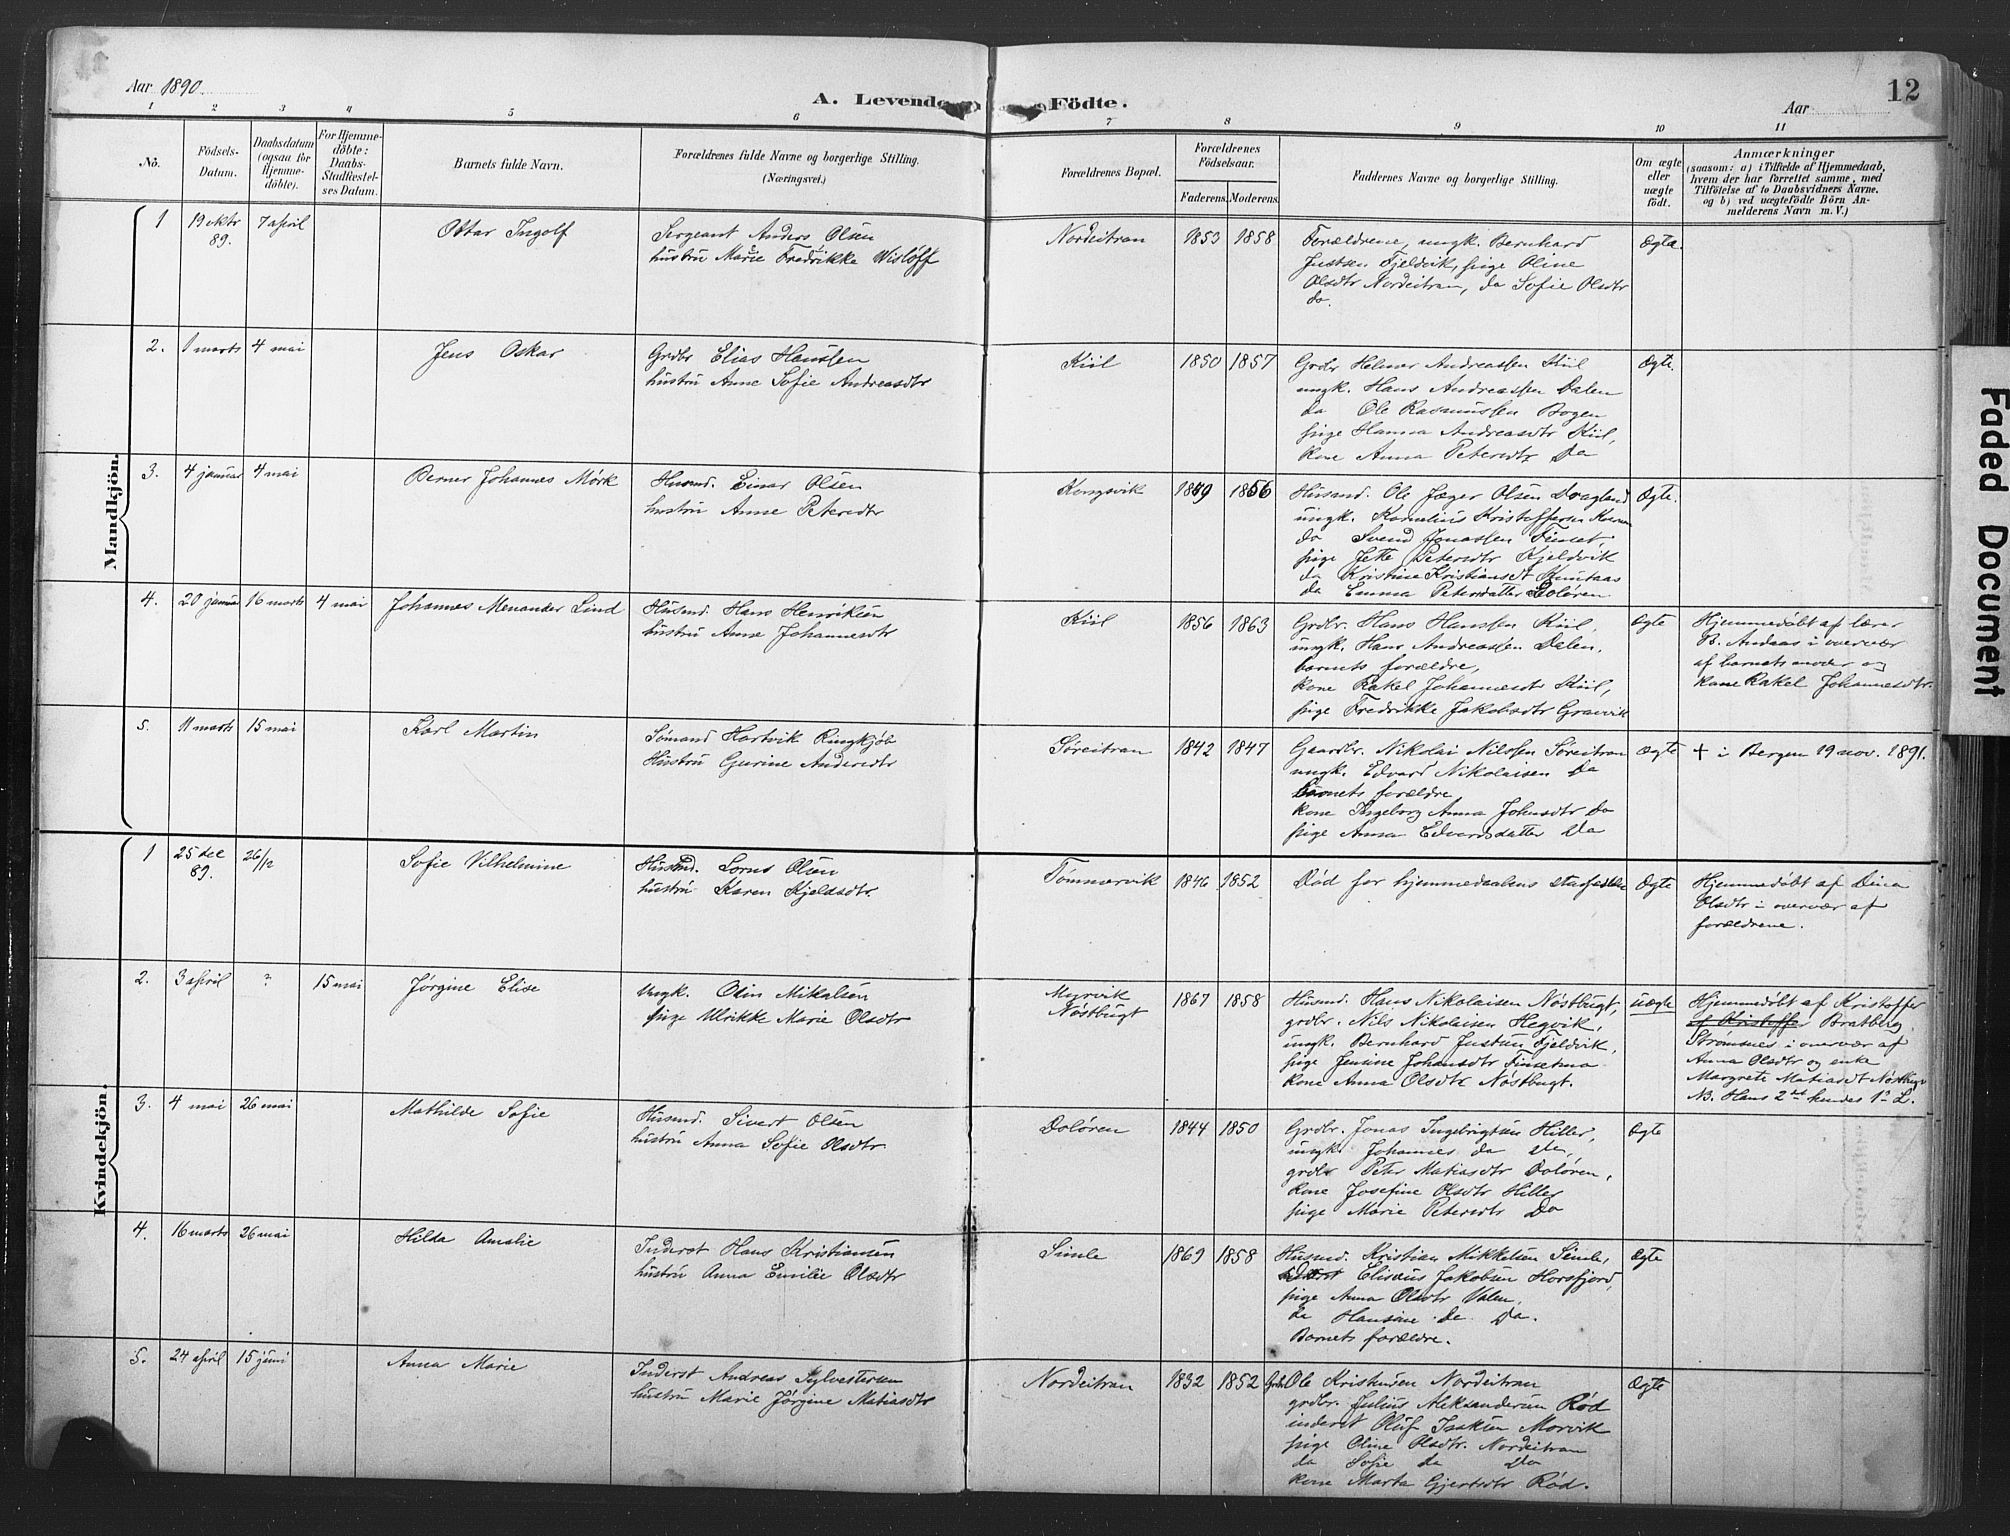 Aar 1890.
A. Levende Födte.
Aar
12
1 2 3 4 5 6 7 8 9 10 11
No.
Födsels-
Datum.
Daabsdatum
(ogsaa for
Hjemme-
döbte).
For Hjemme-
döbte:
Daabs-
Stadfæstel-
ses Datum.
Barnets fulde Navn.
Forældrenes fulde Navne og borgerlige Stilling.
(Næringsvei.)
Forældrenes Bopæl.
Forældrenes
Födselsaar.
Faderens. Moderens.
Faddernes Navne og borgerlige Stilling.
Om ægte
eller
uægte
födt.
Anmærkninger
(saasom: a) i Tilfælde af Hjemmedaab,
hvem der har forrettet samme, med
Tilföielse af to Daabsvidners Navne.
og b) ved uægtefödte Börn An-
melderens Navn m. V.)
Mandkjön.
1
19 oktbr
89.
7 april
Ottar Ingolf
Sergeant Anders Olsen
hustru Marie Fredrikke Wisløff
Nordeitran
1853 1858
Forældrene, ungk. Bernhard
Justsen Fjeldvik, pige Oline
Olsdtr Nordeitran, do Sofie Olsdtr
do.
Ægte.
2.
1 marts 4 mai
Jens Oskar
Grdbr Elias Hanssen
hustru Anne Sofie Andreasdtr
Kiil
1850 1857
Grdbr Helmer Andreassen Kiil
ungk. Hans Andreassen Dalen
do Ole Rasmussen Bogen
pige Hanna Andreasdtr Kiil,
kone Anna Petersdtr Do
Ægte.
3.
4 januar 4 mai
Berner Johannes Mørk
Husmd. Einar Olsen
hustru Anne Petersdtr
Kongsvik
1849 1856
Husmd. Ole Jæger Olsen Dragland
ungk. Kornelius Kristoffersen
do Svend Jonassen Finset
pige Jette Petersdtr Kjeldvik
do Kristine Kristiansdt Knutaas
do Emma Petersdatter Doløren
Ægte.
4.
20 januar 16 marts 4 mai
Johannes Menander Lind
Husmd. Hans Henriksen
hustru Anne Johannesdtr
Kiil
1856 1863
Grdbr. Hans Hanssen Kiil,
ungk. Hans Andreassen Dalen,
barnets forældre,
kone Rakel Johannesdtr Kiil,
pige Fredrikke Jakobsdtr Gravvik
Ægte
Hjemmedøbt af lærer
B. Andaas i overvær
af barnets moder og
kone Rakel Johannesdtr.
5.
11 marts 15 mai
Karl Martin
Sømand Hartvik Ringkjøb
Hustru Gurine Andersdtr
Søreitran
1842 1847
Gaardbr. Nikolai Nilssen Søreitran
ungk. Edvard Nikolaisen Do
barnets forældre
kone Ingeborg Anna Johnsdtr Do
pige Anna Edvardsdatter Do
Ægte
† i Bergen 19 nov. 1891.
Kvindekjön.
1
25 dec
89.
26/12
Sofie Vilhelmine
Husmd. Lorns Olsen
hustru Karen Kjeldsdtr.
Tømmervik
1846 1852
Død før hjemmedaabens stadfæstelse
Ægte
Hjemmedøbt af Dina
Olsdtr i overvær af
forældrene.
2.
3 april ? 15 mai
Jørgine Elise
Ungk. Odin Mikalsen
pige Ulrikke Marie Olsdtr
Myrvik
Nøstbugt
1867 1858
Husmd. Hans Nikolaisen Nøstbugt,
grdbr. Nils Nikolaisen Hegvik,
ungk. Bernhard Justsen Fjeldvik,
pige Jensine Johansdtr Finsetmo
kone Anna Olsdtr Nøstbugt.
uægte
Hjemmedøbt af Kristoffer
af Kristoffer Bratberg
Strømsnes i overvær af
Anna Olsdtr og enke
Margrete Matiasdt Nøstbugt
NB. Hans 2det hendes 1ste L.
3.
4 mai 26 mai
Mathilde Sofie
Husmd. Sivert Olsen
hustru Anna Sofie Olsdtr
Doløren
1844 1850
Grdbr. Jonas Ingebrigtsen Hiller,
ungk. Johannes do do,
grdbr Peter Matiasdtr Doløren,
kone Josefine Olsdtr Hiller
pige Marie Petersdtr Do
Ægte
4.
16 marts 26 mai
Hilda Amalie
Inderst Hans Kristiansen
hustru Anna Emilie Olsdtr
Simle
1869 1858
Husmd. Kristian Mikkelsen Simle,
Elisæus Jakobsen Horsfjord,
pige Anna Olsdtr Valen,
do Hansine do Do.
Barnets forældre.
Ægte
5.
24 april 15 juni
Anna Marie
Inderst Andreas Sylvestersen
hustru Marie Jørgine Matiasdtr
Nordeitran
1832 1852
Grdbr Ole Kristensen Nordeitran
grdbr. Julius Aleksandersen Rød
inderst Oluf Isaksen Morvik
pige Oline Olsdtr. Nordeitran
do Sofie do Do
kone Marta Gjertsdtr Rød.
Ægte
Faded Document